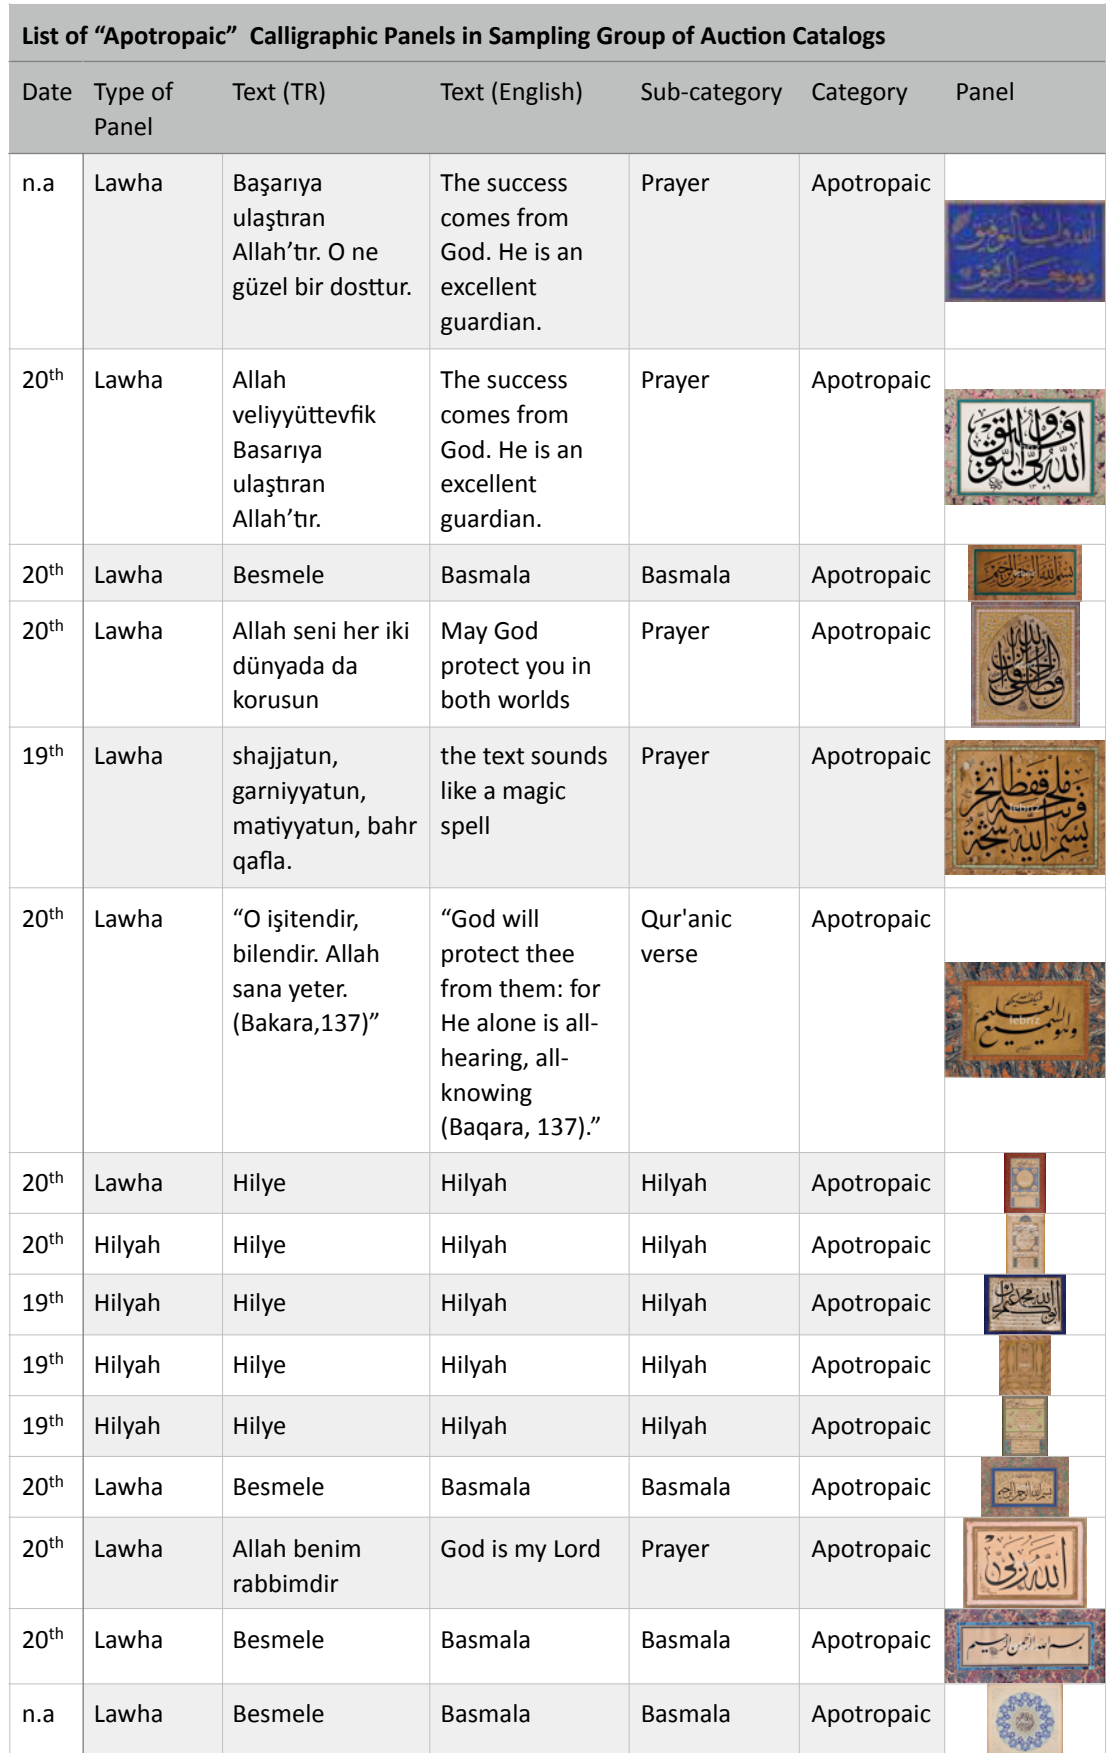 List of “Apotropaic”  Calligraphic Panels in Sampling Group of Auction Catalogs
Date Type of Panel Text (TR) Text (English) Sub-category Category Panel
n.a Lawha Başarıya ulaştıran Allah’tır. O ne güzel bir dosttur. The success comes from God. He is an excellent guardian. Prayer Apotropaic
20th Lawha Allah veliyyüttevfik Basarıya ulaştıran Allah’tır. The success comes from God. He is an excellent guardian. Prayer Apotropaic
20th Lawha Besmele Basmala Basmala Apotropaic
20th Lawha Allah seni her iki dünyada da korusun May God protect you in both worlds Prayer Apotropaic
19th Lawha shajjatun, garniyyatun, matiyyatun, bahr qafla. the text sounds like a magic spell Prayer Apotropaic
20th Lawha “O işitendir, bilendir. Allah sana yeter. (Bakara,137)” “God will protect thee from them: for He alone is all-hearing, all-knowing (Baqara, 137).” Qur'anic verse Apotropaic
20th Lawha Hilye Hilyah Hilyah Apotropaic
20th Hilyah Hilye Hilyah Hilyah Apotropaic
19th Hilyah Hilye Hilyah Hilyah Apotropaic
19th Hilyah Hilye Hilyah Hilyah Apotropaic
19th Hilyah Hilye Hilyah Hilyah Apotropaic
20th Lawha Besmele Basmala Basmala Apotropaic
20th Lawha Allah benim rabbimdir God is my Lord Prayer Apotropaic
الله ربي
20th Lawha Besmele Basmala Basmala Apotropaic
بسم الله الرحمن الرحيم
n.a Lawha Besmele Basmala Basmala Apotropaic